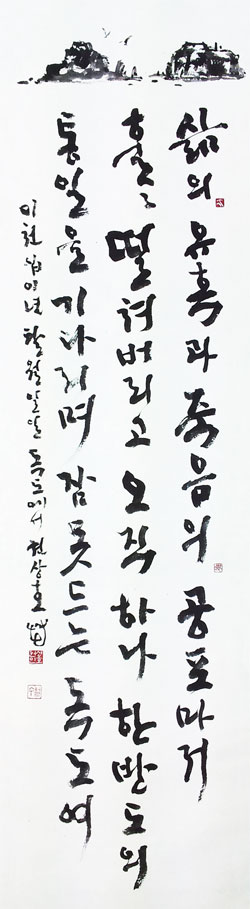 삶의 유혹과 죽음의 공포마저
훌〻 떨쳐버리고 오직 하나 한반도의
통일을 기다리며 잠 못 드는 독도여
이천십이년 팔월 일일 독도에서 권상호